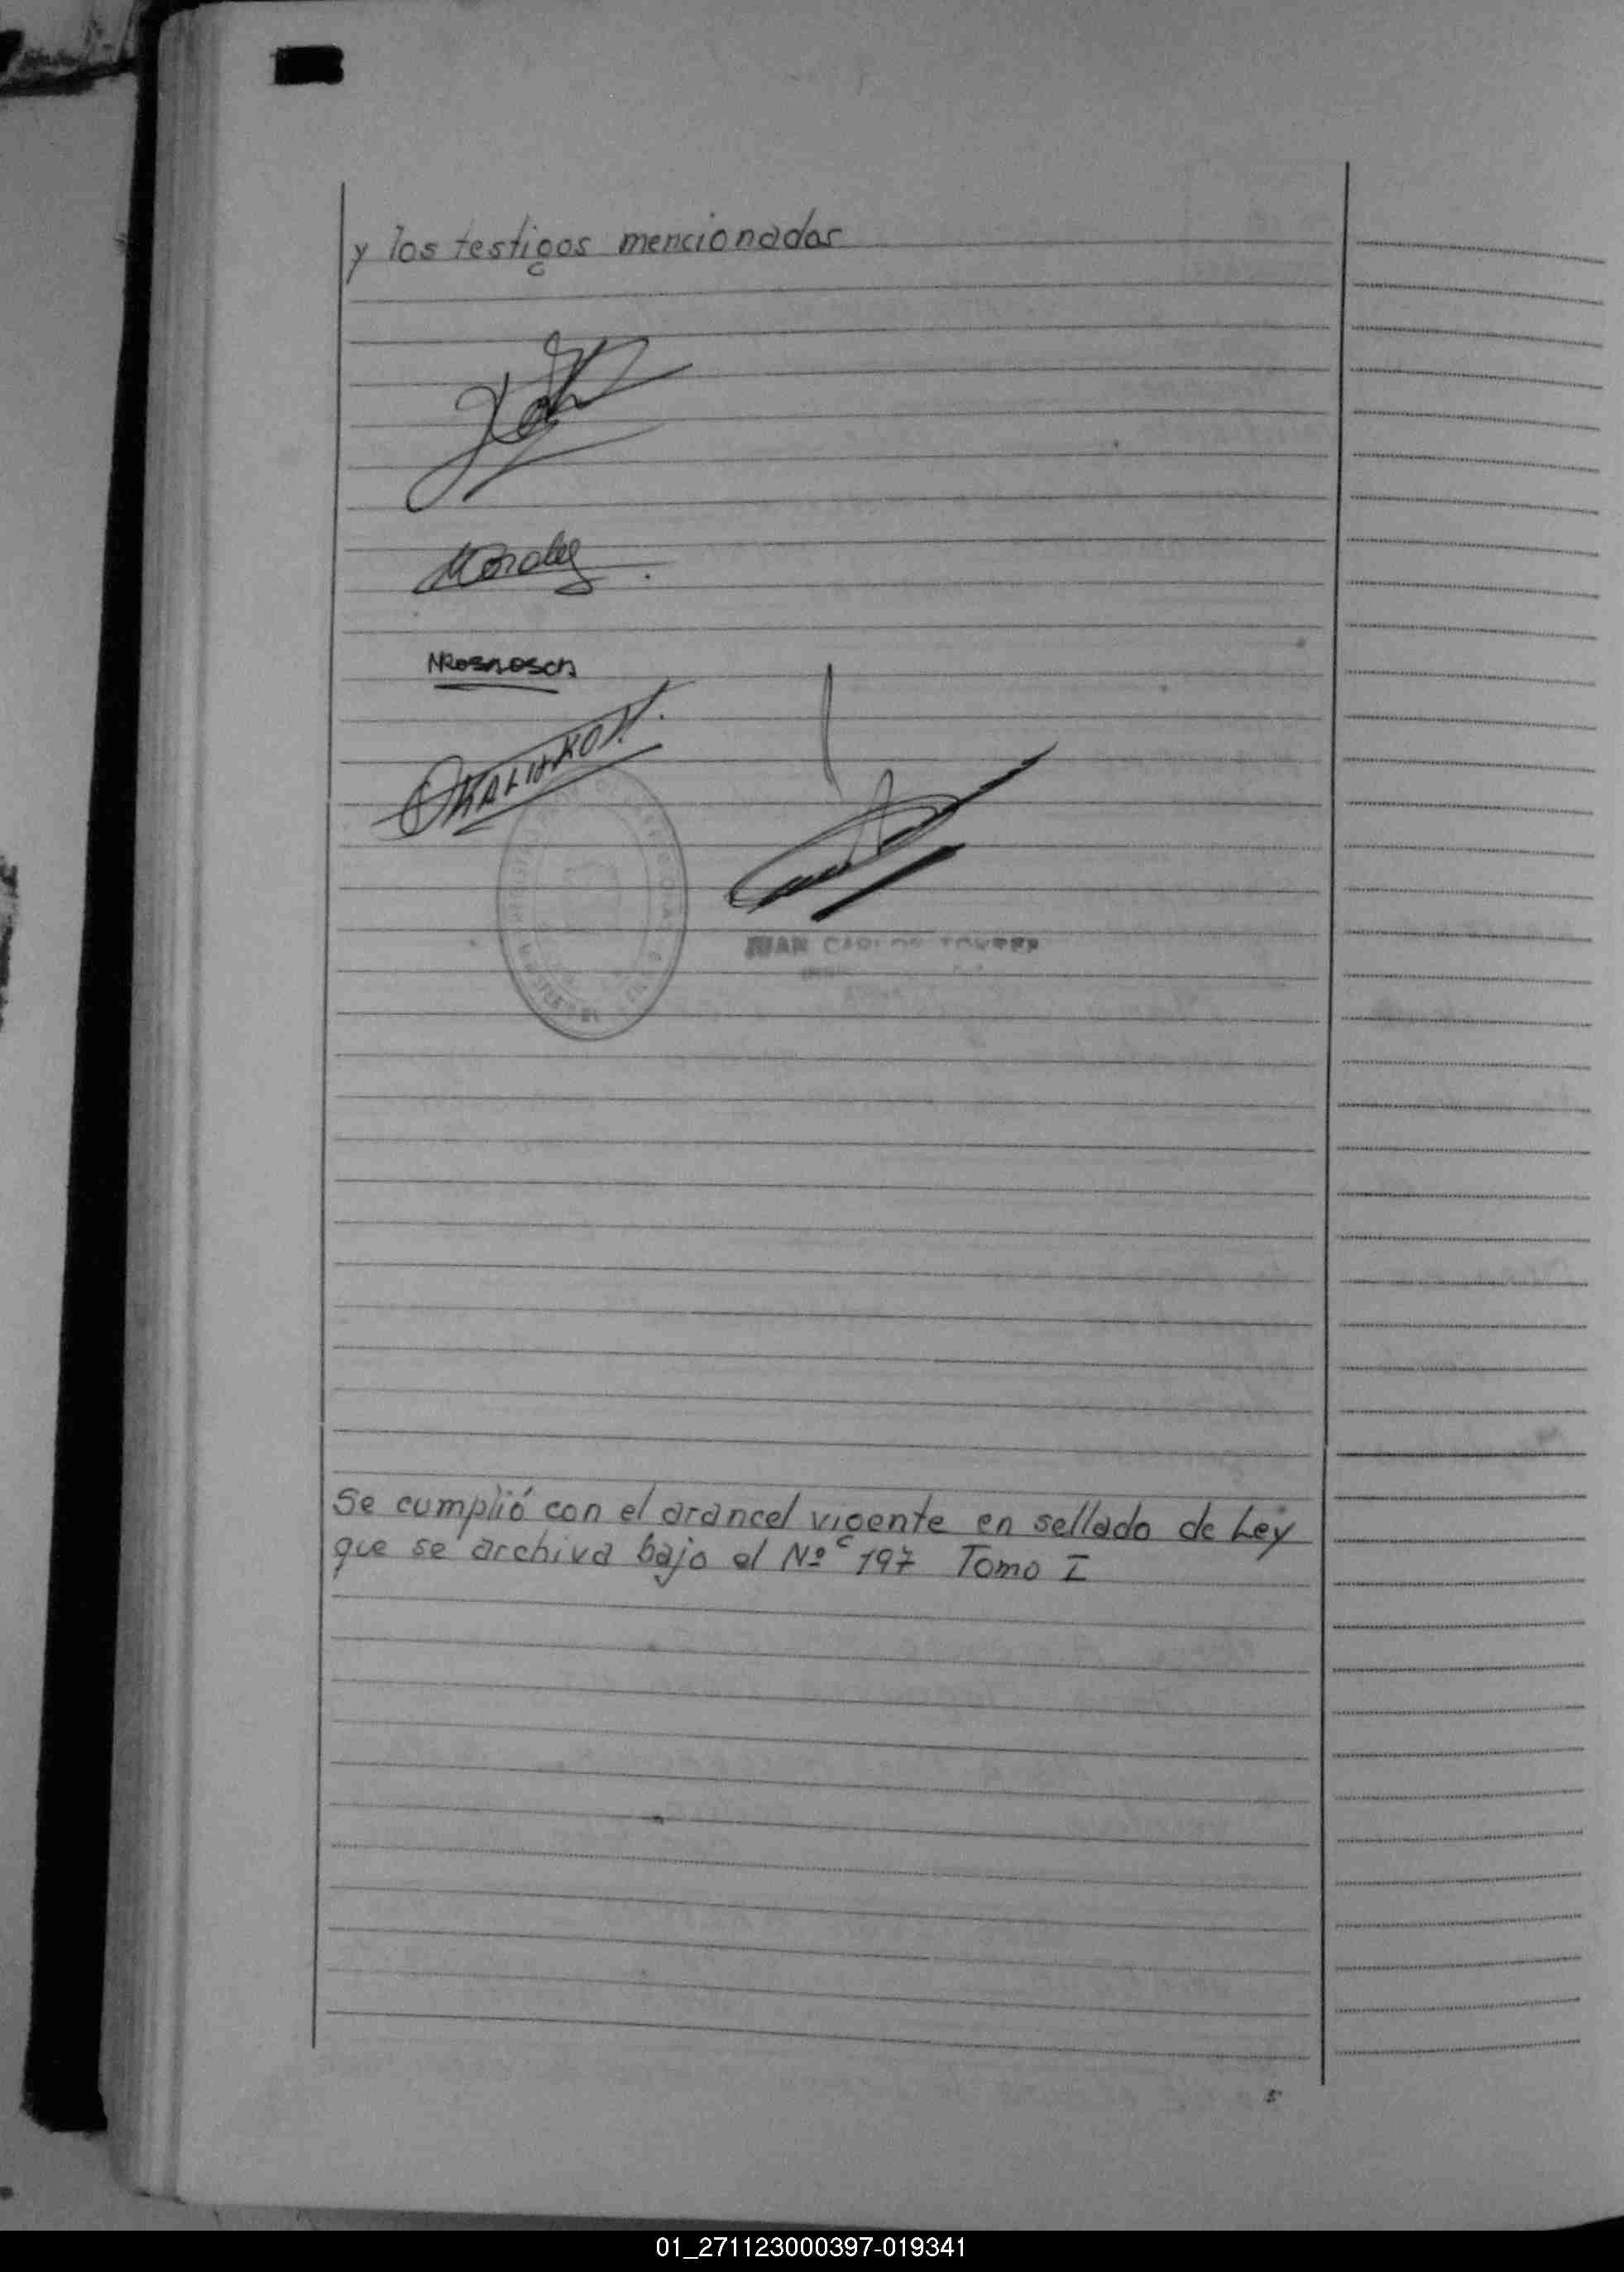 y los testigos mencionados
Morales
NROSNOSCH
KALIUKOV.
JUAN CARLOS TORRES
Se cumplió con el arancel vigente en sellado de Ley
que se archiva bajo el Nº 197 Tomo I
5
01_271123000397-019341